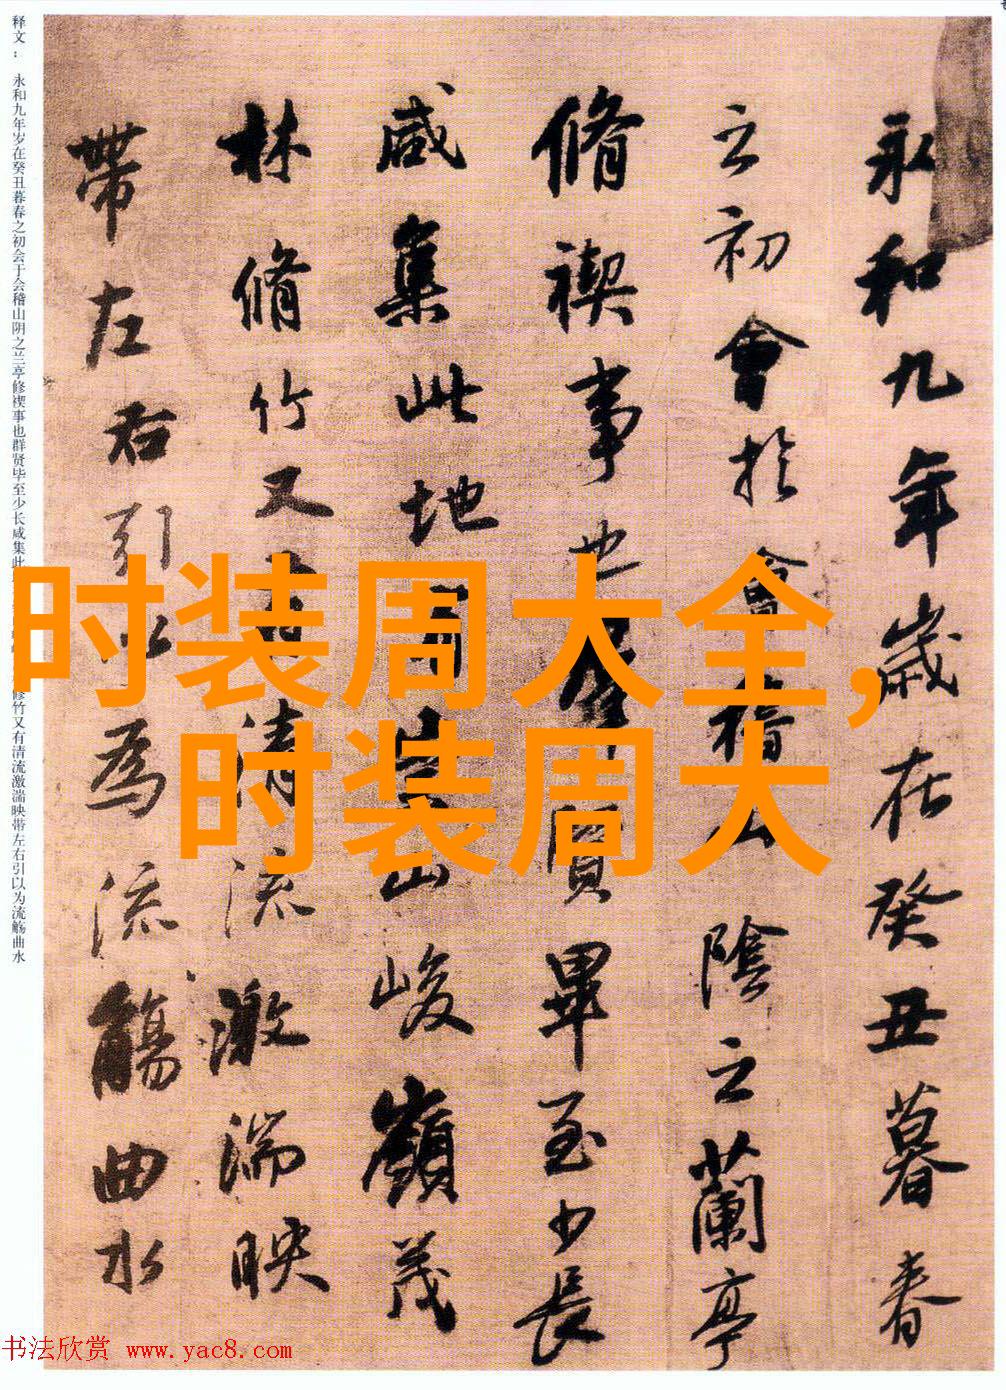 永和九年歲在癸丑暮春
之初會於會稽山陰之蘭亭
脩禊事也羣賢畢至少長
咸集此地有崇山峻嶺茂
林脩竹又有清流激湍映
帶左右引以為流觴曲水
释文： 永和九年岁在癸丑暮春之初会于会稽山阴之兰亭修禊事也群贤毕至少长咸集此 修竹又有清流激湍映带左右引以为流觞曲水
时装周大全,
时装周大
书法欣赏 www.yac8.com